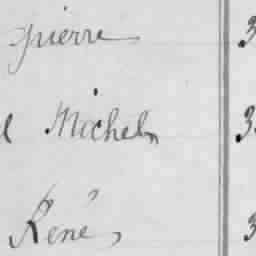 Pierre 3
l Michel, 3
René, 3